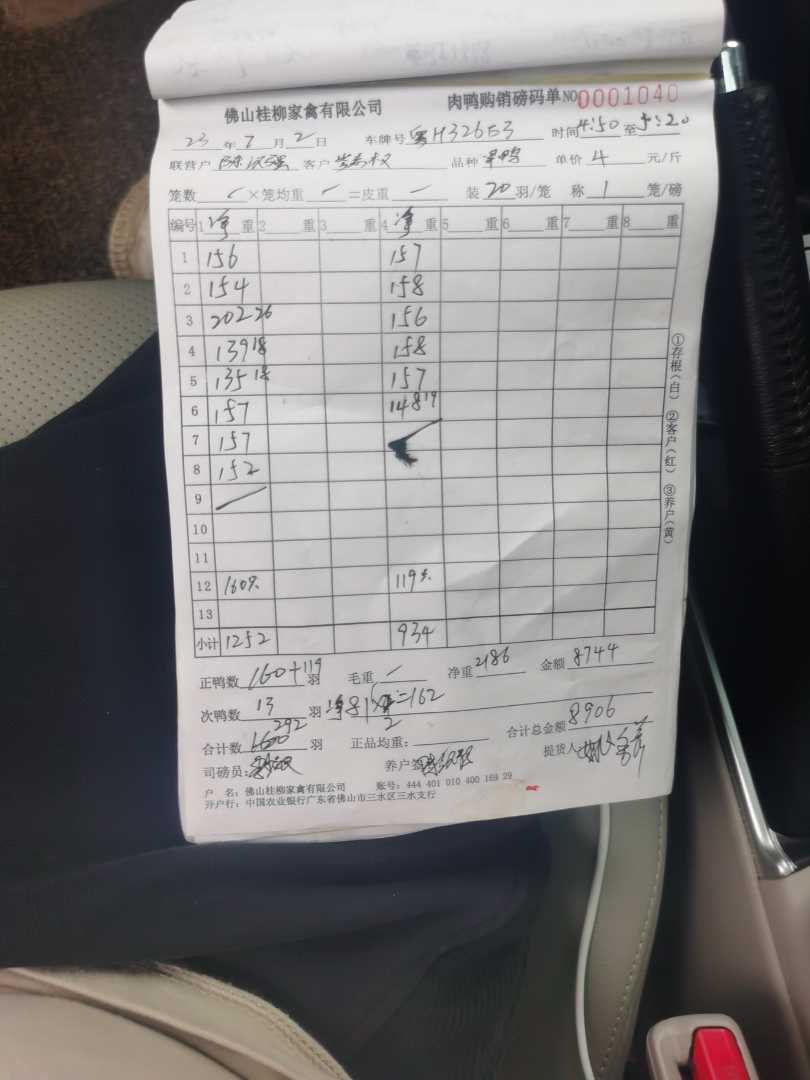 佛山桂柳家禽有限公司 肉鸭购销磅码单 NO 0001040
23 年 7 月 2 日 车牌号 粤H32653 时间 4:50 至 5:20
联营户 客户 品种 单价 4 元/斤
笼数 × 笼均重 = 皮重 装 20 羽/笼 称 1 笼/磅
编号 1 净 重 2 重 3 重 4 净 重 5 重 6 重 7 重 8 重
1 156 157
2 154 158
3 202 26 156
4 139 18 158
5 135 18 157
6 157 148 19
7 157
8 152
9
10
11
12 160只 119只
13
小计 1252 934
正鸭数 160+119 羽 毛重 净重 2186 金额 8744
次鸭数 13 羽 净81×2=162
合计数 292 羽 正品均重: 合计总金额 8906
司磅员: 养户签 提货人
户 名: 佛山桂柳家禽有限公司 账号: 444 401 010 400 169 29
开户行: 中国农业银行广东省佛山市三水区三水支行
①存根(白) ②客户(红) ③养户(黄)